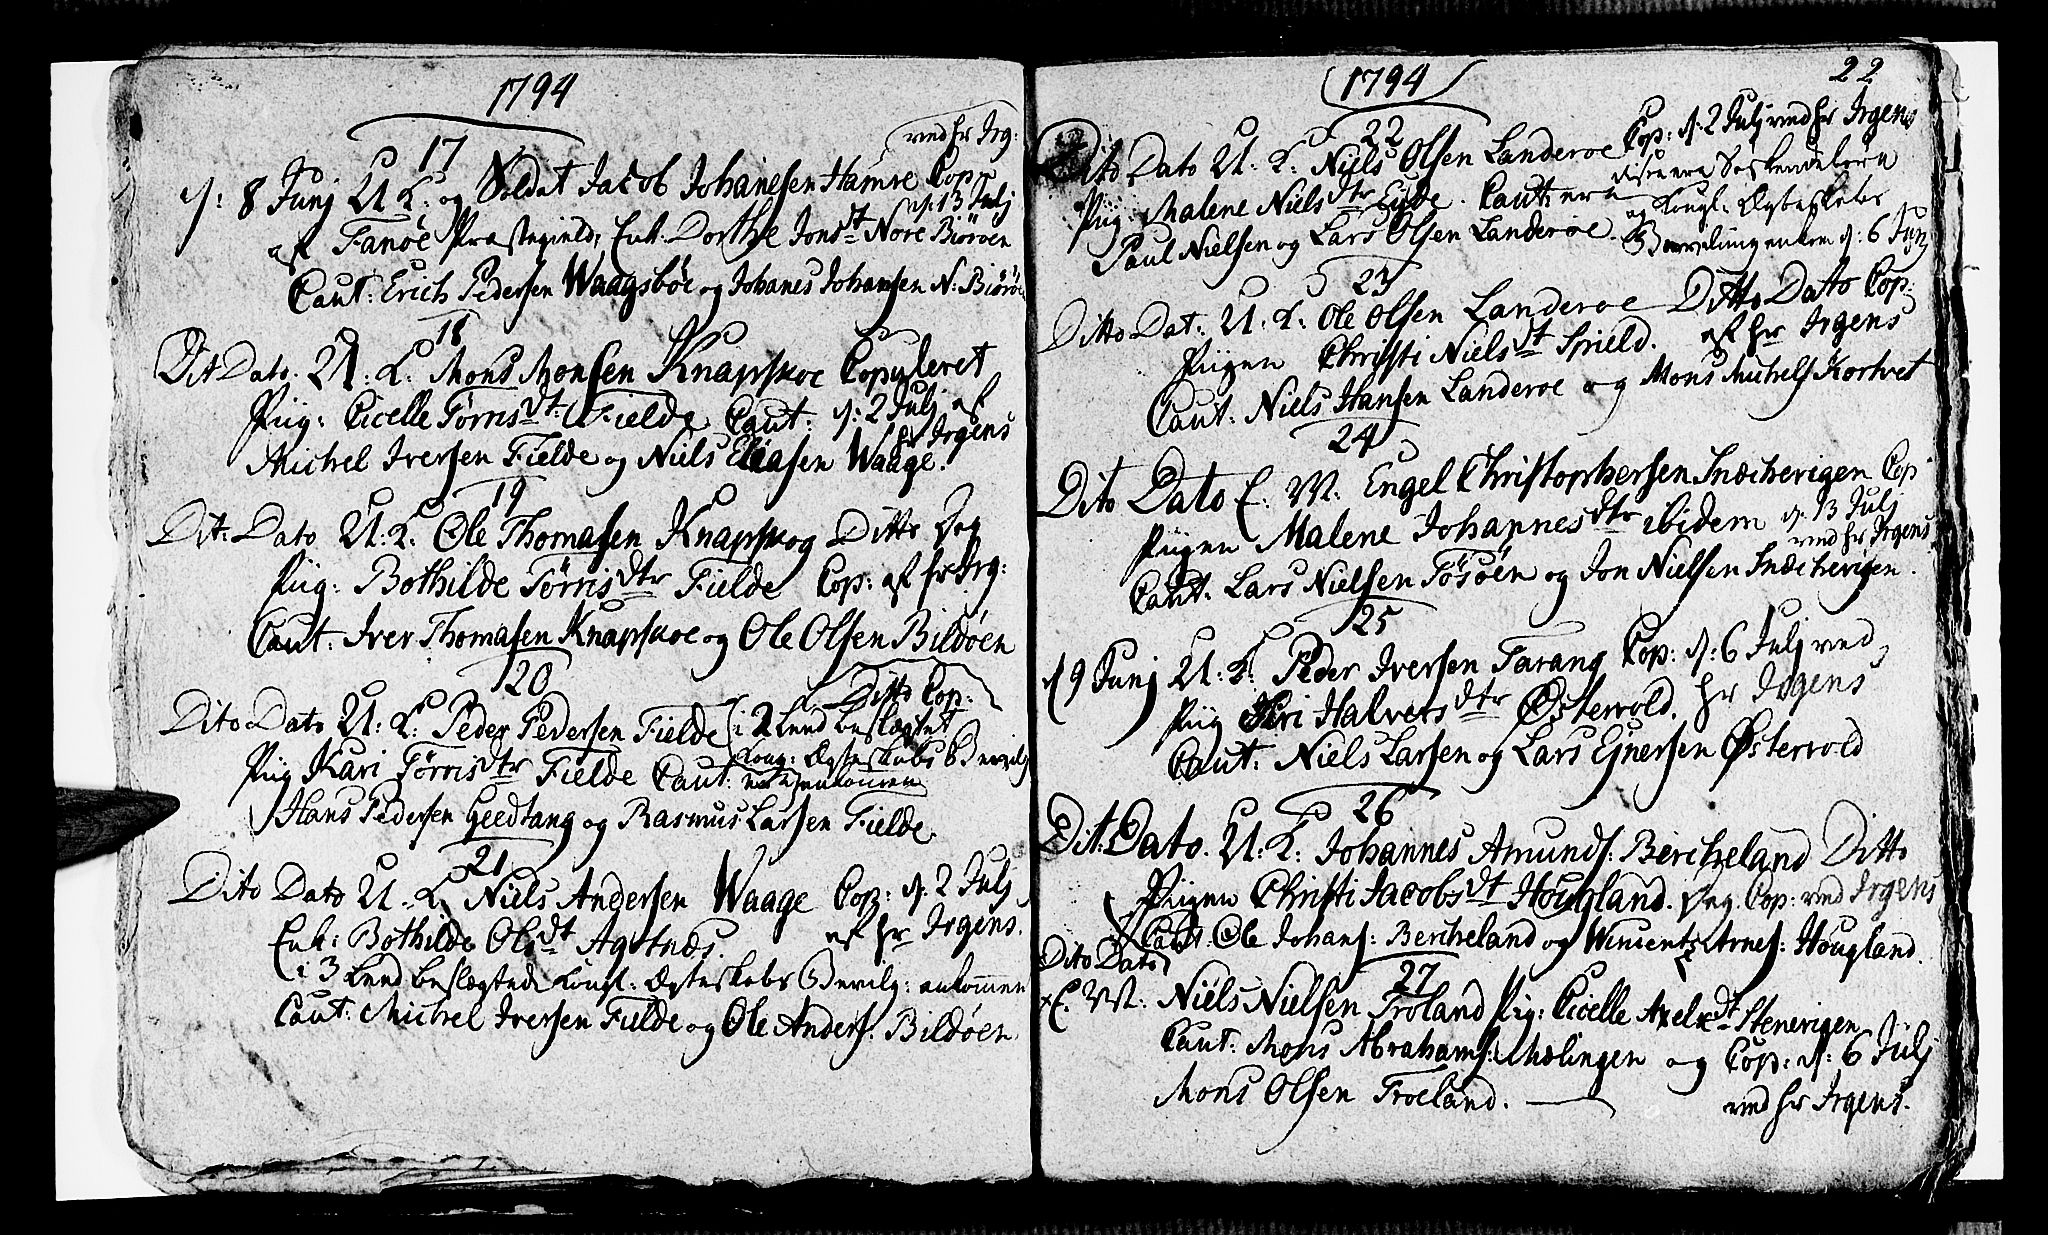 1794
17
ved hr Irg:
d: 8 Junj U. K: og Soldat Jacob Johanesen Hamre Cop:
d: 13 Julj
af Fanöe Præstegield, Enk. Dorthe Jons dt Nore Biöröen
Caut: Erich Pedersen Waagsböe og Johanes Johansen N: Biörö
18
Dit Dato. U: K: Mons Monsen Knapskoe Copuleret
Piig: Cicelle Törris dt: Fielde Caut: d: 2 Julj af
hr Irgens
Michel Iversen Fielde og Niels Eliasen Waage.
19
Dit: Dato U: K: Ole Thomasen Knapskog Ditto Dag
Piig: Bothilde Törris dtr Fielde Cop: af hr Irg:
Caut: Iver Thomasen Knapskoe og Ole Olsen Bildöen
20
Ditto Cop:
Dito Dato U: K: Peder Pedersen Fielde (i 2 Leed beslægtet
Kong: Ægteskabs Bevilg
Piig Kari Törris dtr Fielde Caut:
Hans Pedersen Geedtang og Rasmus Larsen Fielde
21
Dito Dato U. K Niels Andersen Waage Cop: d: 2 Julj
af hr Irgens.
Enk: Bothilde Ols dt Agotnæs.
(i 3 Leed beslægtede Kongl: Ægteskabs Bevilg: ankommen
Caut: Michel Iversen Fielde og Ole Anders: Bildöen
1794
22
22
Dito Dato U. K: Niels Olsen Landeroe Cop: d: 2 Julj ved hr Irgens
disse ere Sødskendebørn
Piig: Malene Niels dtr Eyde. Caut: ere
og Kongl: Ægteskabs
Paul Nielsen og Lars Olsen Landeröe.
Bevilling ankom d: 6 Junj
23
Ditto Dat: U. K: Ole Olsen Landeroe Ditto Dato Cop:
af hr Irgens
Piigen Christi Niels dt Spield.
Caut: Niels Hansen Landeroe og Mons Michels Kortvet
24
Dito Dato E. M: Engel Christophersen Indthevigen Cop
d. 13 Julj
Piigen Malene Johannes dtr ibidem
ved hr Irgens
Caut: Lars Nielsen Tösöen og Jon Nielsen Indthevigen.
25
d 9 Junj U. K: Peder Iversen Tarang Cop: d: 6 Julj ved
hr Irgens
Piig Kari Halvers dtr Østervold.
Caut: Niels Larsen og Lars Ejnersen Østervold
26
Dit: Dato. U: K: Johannes Amunds: Bercheland Ditto
Piigen Christi Jacobs dt Hougland. Dag Cop: ved Irgens
Caut: Ole Johans: Bercheland og Wincentz Arnes: Hougland.
27
Dito Dato
E. M: Niels Nielsen Troland Pig: Cicelle Axels dt Stenevigen
Caut: Mons Abrahams: Mælingen og Cop: d: 6 Julj
Mons Olsen Troeland.
ved hr Irgens.